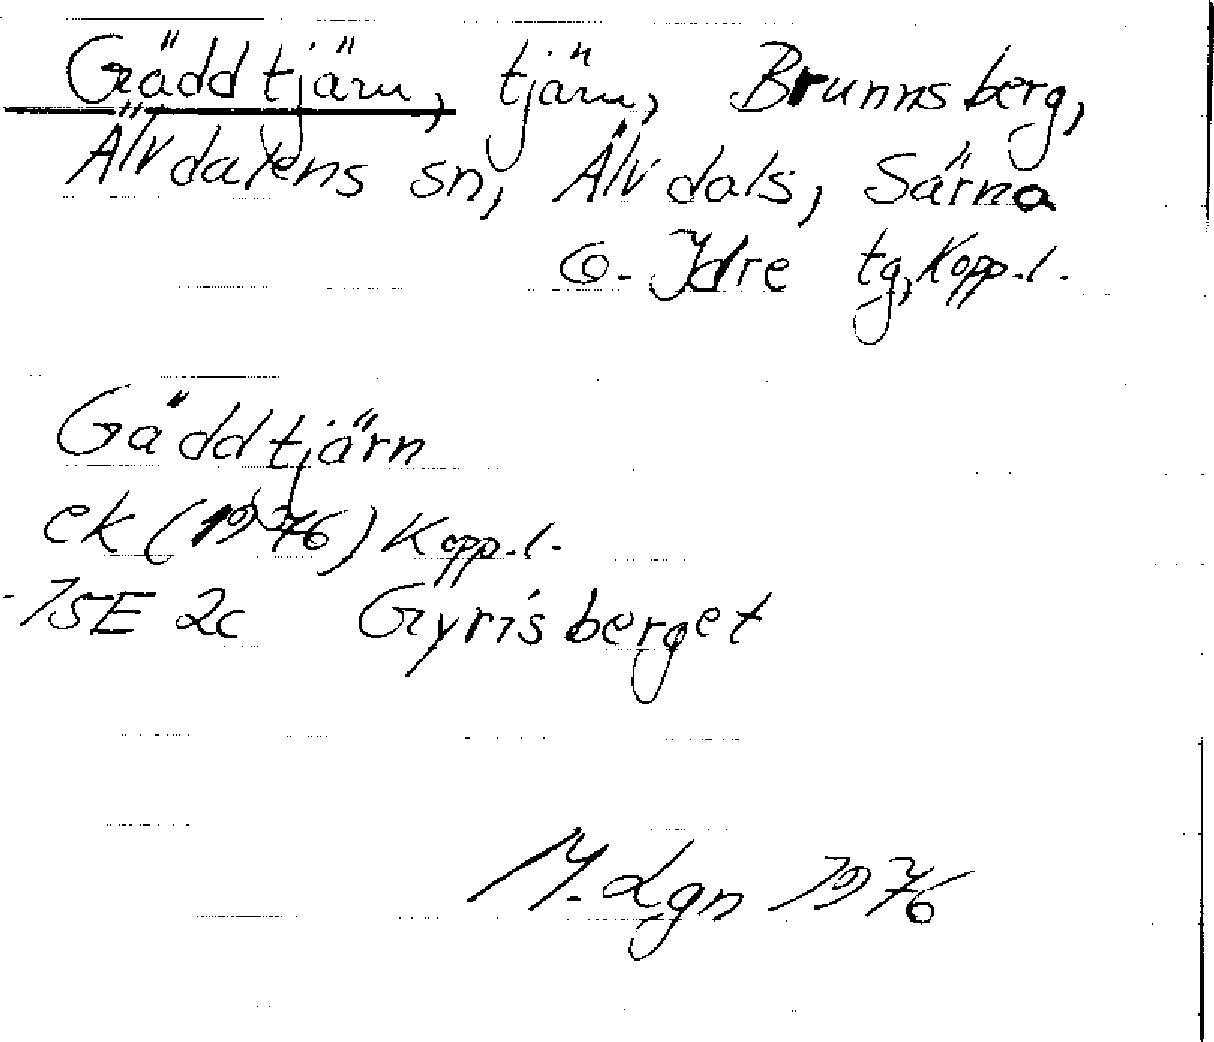 Gäddtjärn, tjärn, Brunnsberg,
Älvdalens sn, Älvdals, Särna
o. Idre tg, Kopp. l.
Gäddtjärn
ek (1976) Kopp. l.
15E 2c Gyrisberget
M. Lgn 1976